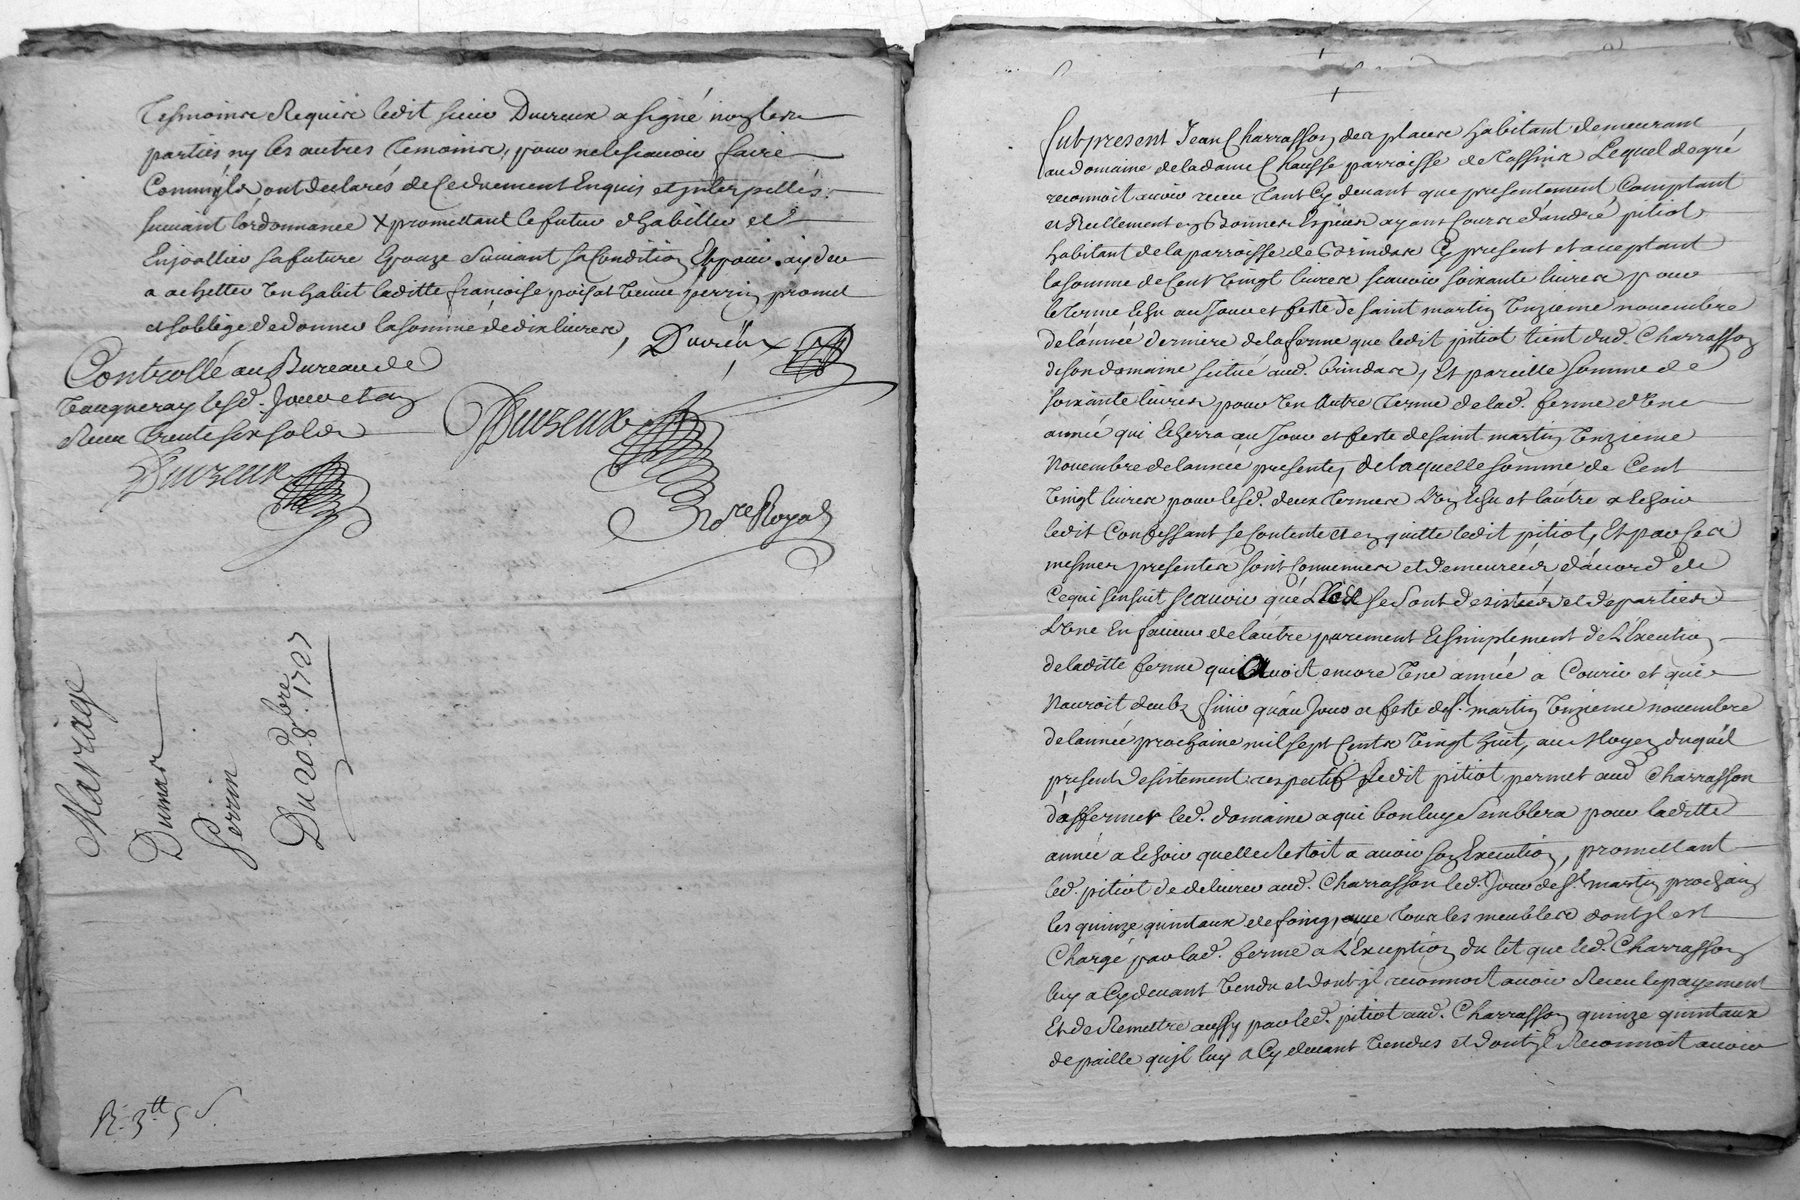 Tesmoins Requis ledit sieur Duvreux a signé non les
parties ny les autres Temoins, pour ne le scavoir faire
Comm'ils ont declarés de ce duement Enquis et jnterpellés
suivant l'ordonnance x promettant le futur d'habiller et
Enjoallier sa future Epouze Suivant sa Condition Et pour ayder
a achetter un habit laditte francoise poisat veuve perrin promet
et s'oblige de donner la somme de dix livres, Duvreux
Controllé au Bureau de
Vaugneray lesd. Jour et an
Receu trente six sols
Duvreux
Duvreux
No.re Royal
Mariage
Dumas
Perrin
Du 20e 8bre 1727
R. 3tt 5 s.
Fut present Jean Charrasson des places habitant demeurant
au domaine de la dame Chausse parroisse de Tassins Lequel de gré
reconnoit avoir receu tant Cy devant que presentement Comptant
et Reellement en Bonnes Especes ayant Cours d'andré pitiot
habitant de la parroisse de Brindas Cy present et acceptant
la somme de Cent vingt livres scavoir soixante livres pour
le terme Echu au Jour et feste de saint martin unzieme novembre
de l'année derniere de la ferme que ledit pitiot tient dud. Charrasson
de son domaine scitué aud. brindas, Et pareille somme de
soixante livres pour un Autre terme de lad. ferme d'une
année qui Echerra au Jour et feste de saint martin unzieme
Novembre de l'année presente, de laquelle somme de Cent
vingt livres pour lesd. deux termes l'un Echu et l'autre a Echoir
ledit Confessant se Contente et en quitte ledit pitiot, Et par ces
mesmes presentes sont Convenues et demeurées d'acord de
Ce qui s'ensuit scavoir que se sont desistées et departies
L'une En faveur de l'autre purement Et simplement de L'Execution
de laditte ferme qui avoit encore une année a Courir et qui
N'auroit deub finir qu'au Jour et feste de St. martin unzieme novembre
de l'année prochaine mil sept Cents vingt huit, au Moyen duquel
present desistement respectif ledit pitiot permet aud Charrasson
d'affermer led. domaine a qui bon luy Semblera pour laditte
année a Echoir quelle Restoit a avoir son Execution, promettant
led. pitiot de delivrer aud. Charrasson led. Jour de St. martin prochain
les quinze quintaux de foing, avec tous les meubles dont jl est
Chargé par lad. ferme a L'Exception du lit que led. Charrasson
luy a Cy devant vendu et dont jl reconnoit avoir Receu le payement
Et de Remettre aussy par led. pitiot aud. Charrasson quinze quintaux
de paille qu'jl luy a Cy devant vendus et dont jl Reconnoit avoir